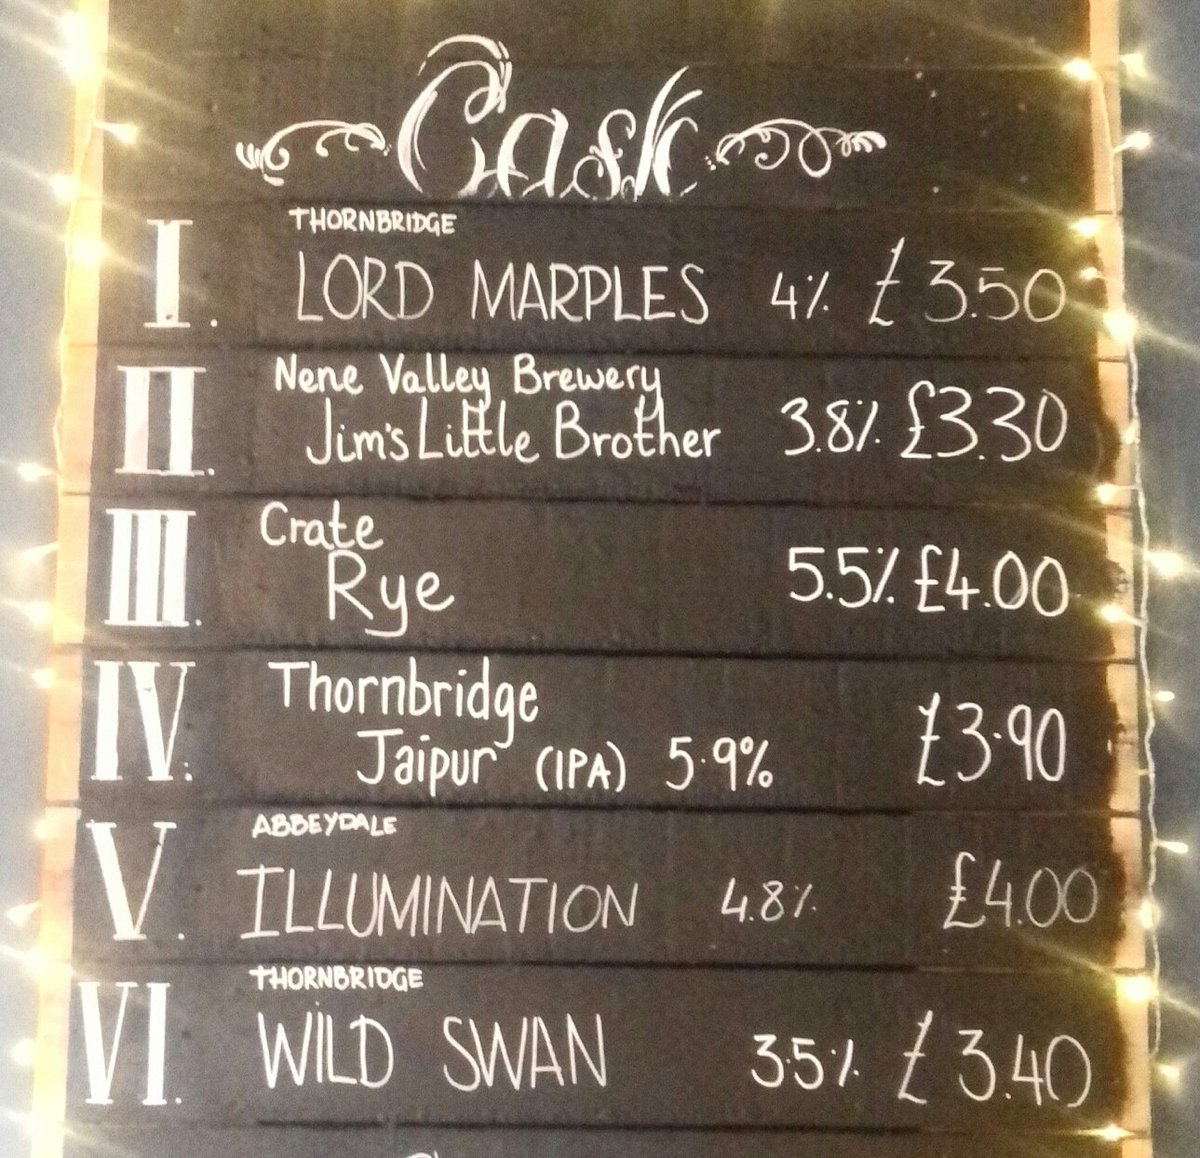 Cask
THORNBRIDGE
I. LORD MARPLES 4% £3.50
Nene Valley Brewery
II. Jim's Little Brother 3.8% £3.30
Crate
III. Rye 5.5% £4.00
Thornbridge
IV. Jaipur (IPA) 5.9% £3.90
ABBEYDALE
V. ILLUMINATION 4.8% £4.00
THORNBRIDGE
VI. WILD SWAN 3.5% £3.40